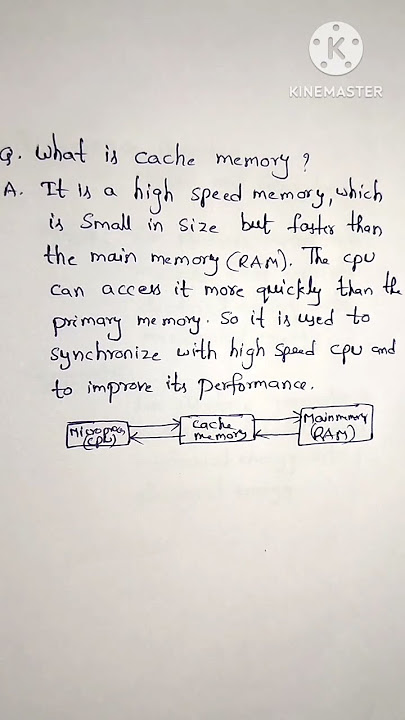 K
KINEMASTER
Q. What is cache memory?
A. It is a high speed memory, which
is small in size but faster than
the main memory (RAM). The cpu
can access it more quickly than the
primary memory. So it is used to
synchronize with high speed cpu and
to improve its performance.
Cache Main memory
memory (RAM)
(CPU)